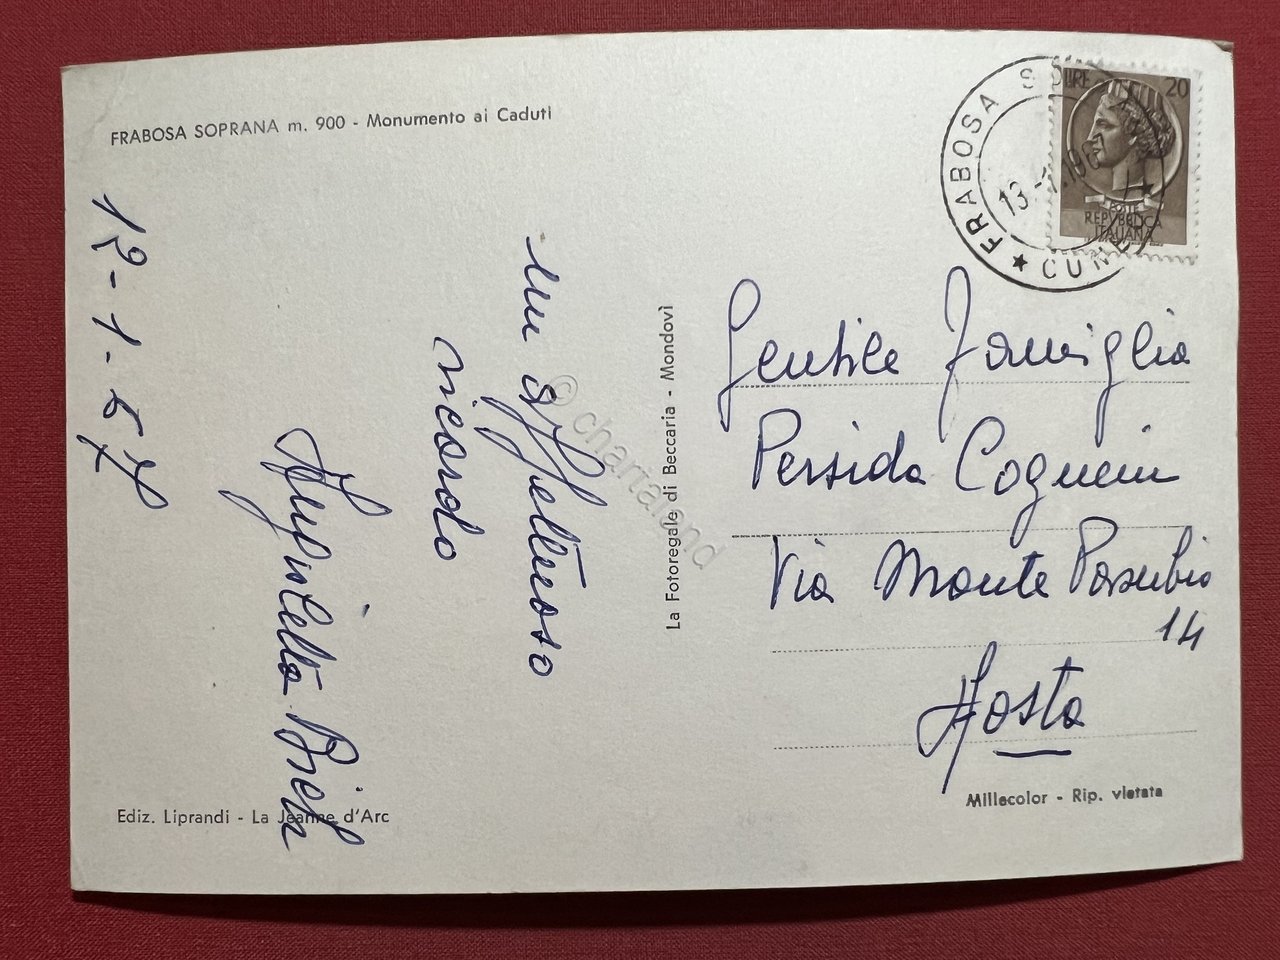 FRABOSA SOPRANA m. 900 - Monumento ai Caduti
12-1-67
un affettuoso
ricordo
La Fotoregale di Beccaria - Mondovì
FRABOSA
CUNEO
13
LIRE 20
POSTE
REPVBBLICA
ITALIANA
Gentile Famiglia
Persida
Via Monte Pasubio
14
Aosta
Ediz. Liprandi - La Jeanne d'Arc
Millecolor - Rip. vietata
© chartaland